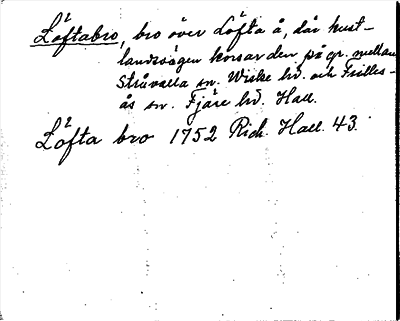 Löftabro, bro över Löfta å, där kust-
landsvägen korsar den på gr. mellan
Stråvalla sn. Wiske hd. och Frilles-
ås sn. Fjäre hd. Hall.
Löfta bro 1752 Rich. Hall. 43.